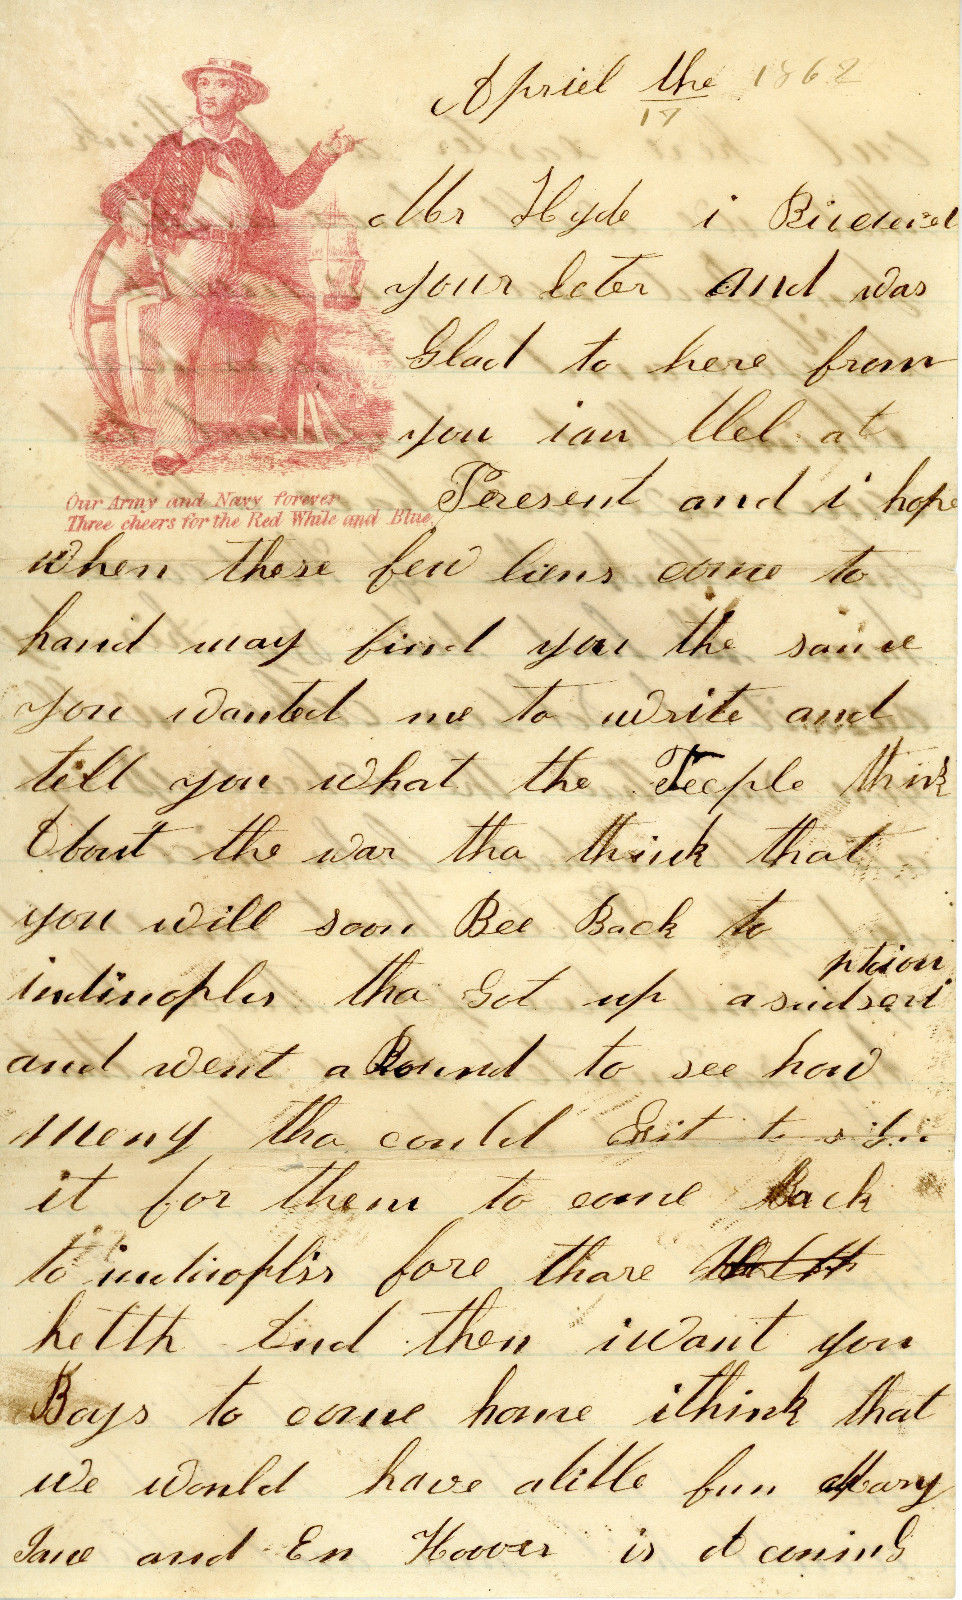 Apriel the 1862
17
Mr Hyde i Recieved
your leter and was
Glad to here from
you i am Wel at
Peresent and i hope
Our Army and Navy forever
Three cheers for the Red White and Blue.
when these few liens come to
hand may find you the same
you wanted me to write and
tell you what the Peeple think
About the war tha think that
you will soon Bee Back to
indinoples tha Got up a
ption
and went a Round to see how
meny tha could Git to sign
it for them to come Back
to indinoplis fore thare
helth And then i want you
Boys to come home i think that
we would have a litle fun Mary
Jane and Em Hoover is a coming